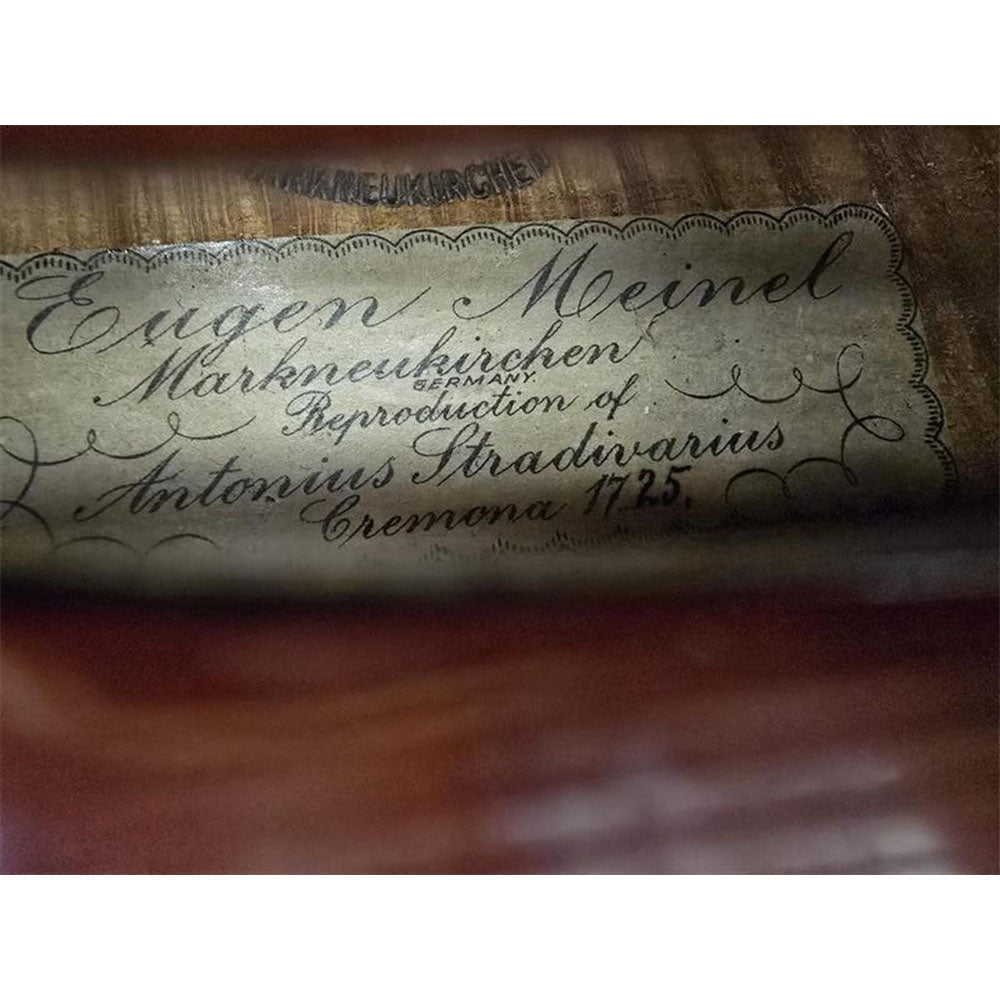 MARKNEUKIRCHEN
Eugen Meinel
Markneukirchen
GERMANY.
Reproduction of
Antonius Stradivarius
Cremona 1725.